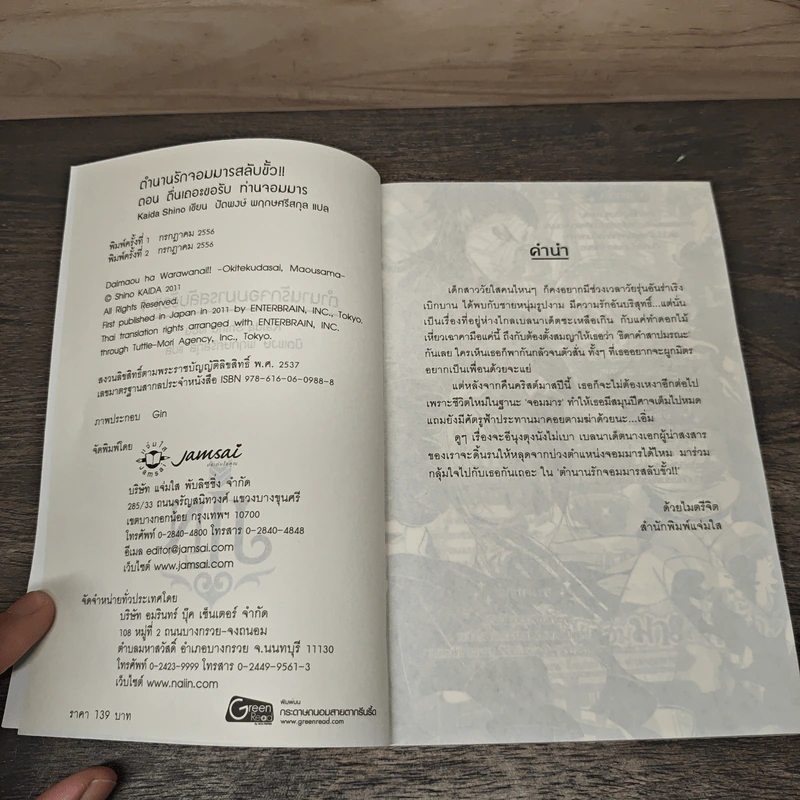 ตำนานรักจอมมารสลับขั้ว!!
ตอน ตื่นเถอะขอรับ ท่านจอมมาร
Kaida Shino เขียน ปัดพงษ์ พฤกษศรีสกุล แปล
พิมพ์ครั้งที่ 1 กรกฎาคม 2556
พิมพ์ครั้งที่ 2 กรกฎาคม 2556
Daimaou ha Warawanai!! -Okitekudasai, Maousama-
© Shino KAIDA 2011
All Rights Reserved.
First published in Japan in 2011 by ENTERBRAIN, INC., Tokyo.
Thai translation rights arranged with ENTERBRAIN, INC.
through Tuttle-Mori Agency, Inc., Tokyo.
สงวนลิขสิทธิ์ตามพระราชบัญญัติลิขสิทธิ์ พ.ศ. 2537
เลขมาตรฐานสากลประจำหนังสือ ISBN 978-616-06-0988-8
ภาพประกอบ Gin
จัดพิมพ์โดย
jamsai
บริษัท แจ่มใส พับลิชชิ่ง จำกัด
285/33 ถนนจรัญสนิทวงศ์ แขวงบางขุนศรี
เขตบางกอกน้อย กรุงเทพฯ 10700
โทรศัพท์ 0-2840-4800 โทรสาร 0-2840-4848
อีเมล editor@jamsai.com
เว็บไซต์ www.jamsai.com
จัดจำหน่ายทั่วประเทศโดย
บริษัท อมรินทร์ บุ๊ค เซ็นเตอร์ จำกัด
108 หมู่ที่ 2 ถนนบางกรวย-จงถนอม
ตำบลมหาสวัสดิ์ อำเภอบางกรวย จ.นนทบุรี 11130
โทรศัพท์ 0-2423-9999 โทรสาร 0-2449-9561-3
เว็บไซต์ www.naiin.com
ราคา 139 บาท
Green Read
พิมพ์บน
กระดาษถนอมสายตากรีนรี้ด
www.greenread.com
คำนำ
เด็กสาววัยใสคนไหนๆ ก็คงอยากมีช่วงเวลาวัยรุ่นอันร่าเริง
เบิกบาน ได้พบกับชายหนุ่มรูปงาม มีความรักอันบริสุทธิ์...แต่นั่น
เป็นเรื่องที่อยู่ห่างไกลเบลนาเด็ตซะเหลือเกิน กับแค่ทำดอกไม้
เหี่ยวเฉาคามือแค่นี้ ถึงกับต้องตั้งสมญาให้เธอว่า 'ธิดาคำสาปมรณะ'
กันเลย ใครเห็นเธอก็พากันกลัวจนตัวสั่น ทั้งๆ ที่เธออยากจะผูกมิตร
อยากเป็นเพื่อนด้วยจะแย่
แต่หลังจากคืนคริสต์มาสปีนี้ เธอก็จะไม่ต้องเหงาอีกต่อไป
เพราะชีวิตใหม่ในฐานะ 'จอมมาร' ทำให้เธอมีสมุนปีศาจเต็มไปหมด
แถมยังมีศัตรูฟ้าประทานมาคอยตามฆ่าด้วยนะ...เอิ่ม
ดูๆ เรื่องจะอีนุงตุงนังไม่เบา เบลนาเด็ตนางเอกผู้น่าสงสาร
ของเราจะดิ้นรนให้หลุดจากบ่วงตำแหน่งจอมมารได้ไหม มาร่วม
กลุ้มใจไปกับเธอกันเถอะ ใน 'ตำนานรักจอมมารสลับขั้ว!!'
ด้วยไมตรีจิต
สำนักพิมพ์แจ่มใส